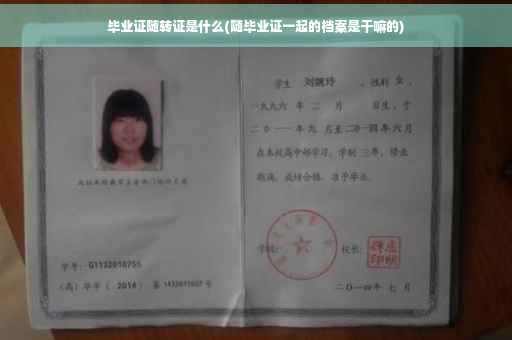 毕业证随转证是什么(随毕业证一起的档案是干嘛的)
学生 刘婉玲 ,性别 女 ,
一九九六 年 二 月 日生,于
二〇一一年九 月至二〇一四年六月
在本校高中部学习,学制 三年,修业
期满,成绩合格,准予毕业。
学号: G1132010755
学校: 校长:
(高)毕字( 2014 )第 1432011027 号
二〇一四年 七 月